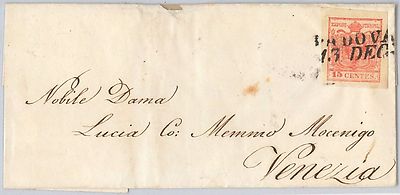 PADOVA
13 DEC.
15 CENTES.
Nobile Dama
Lucia Co: Memmo Mocenigo
Venezia